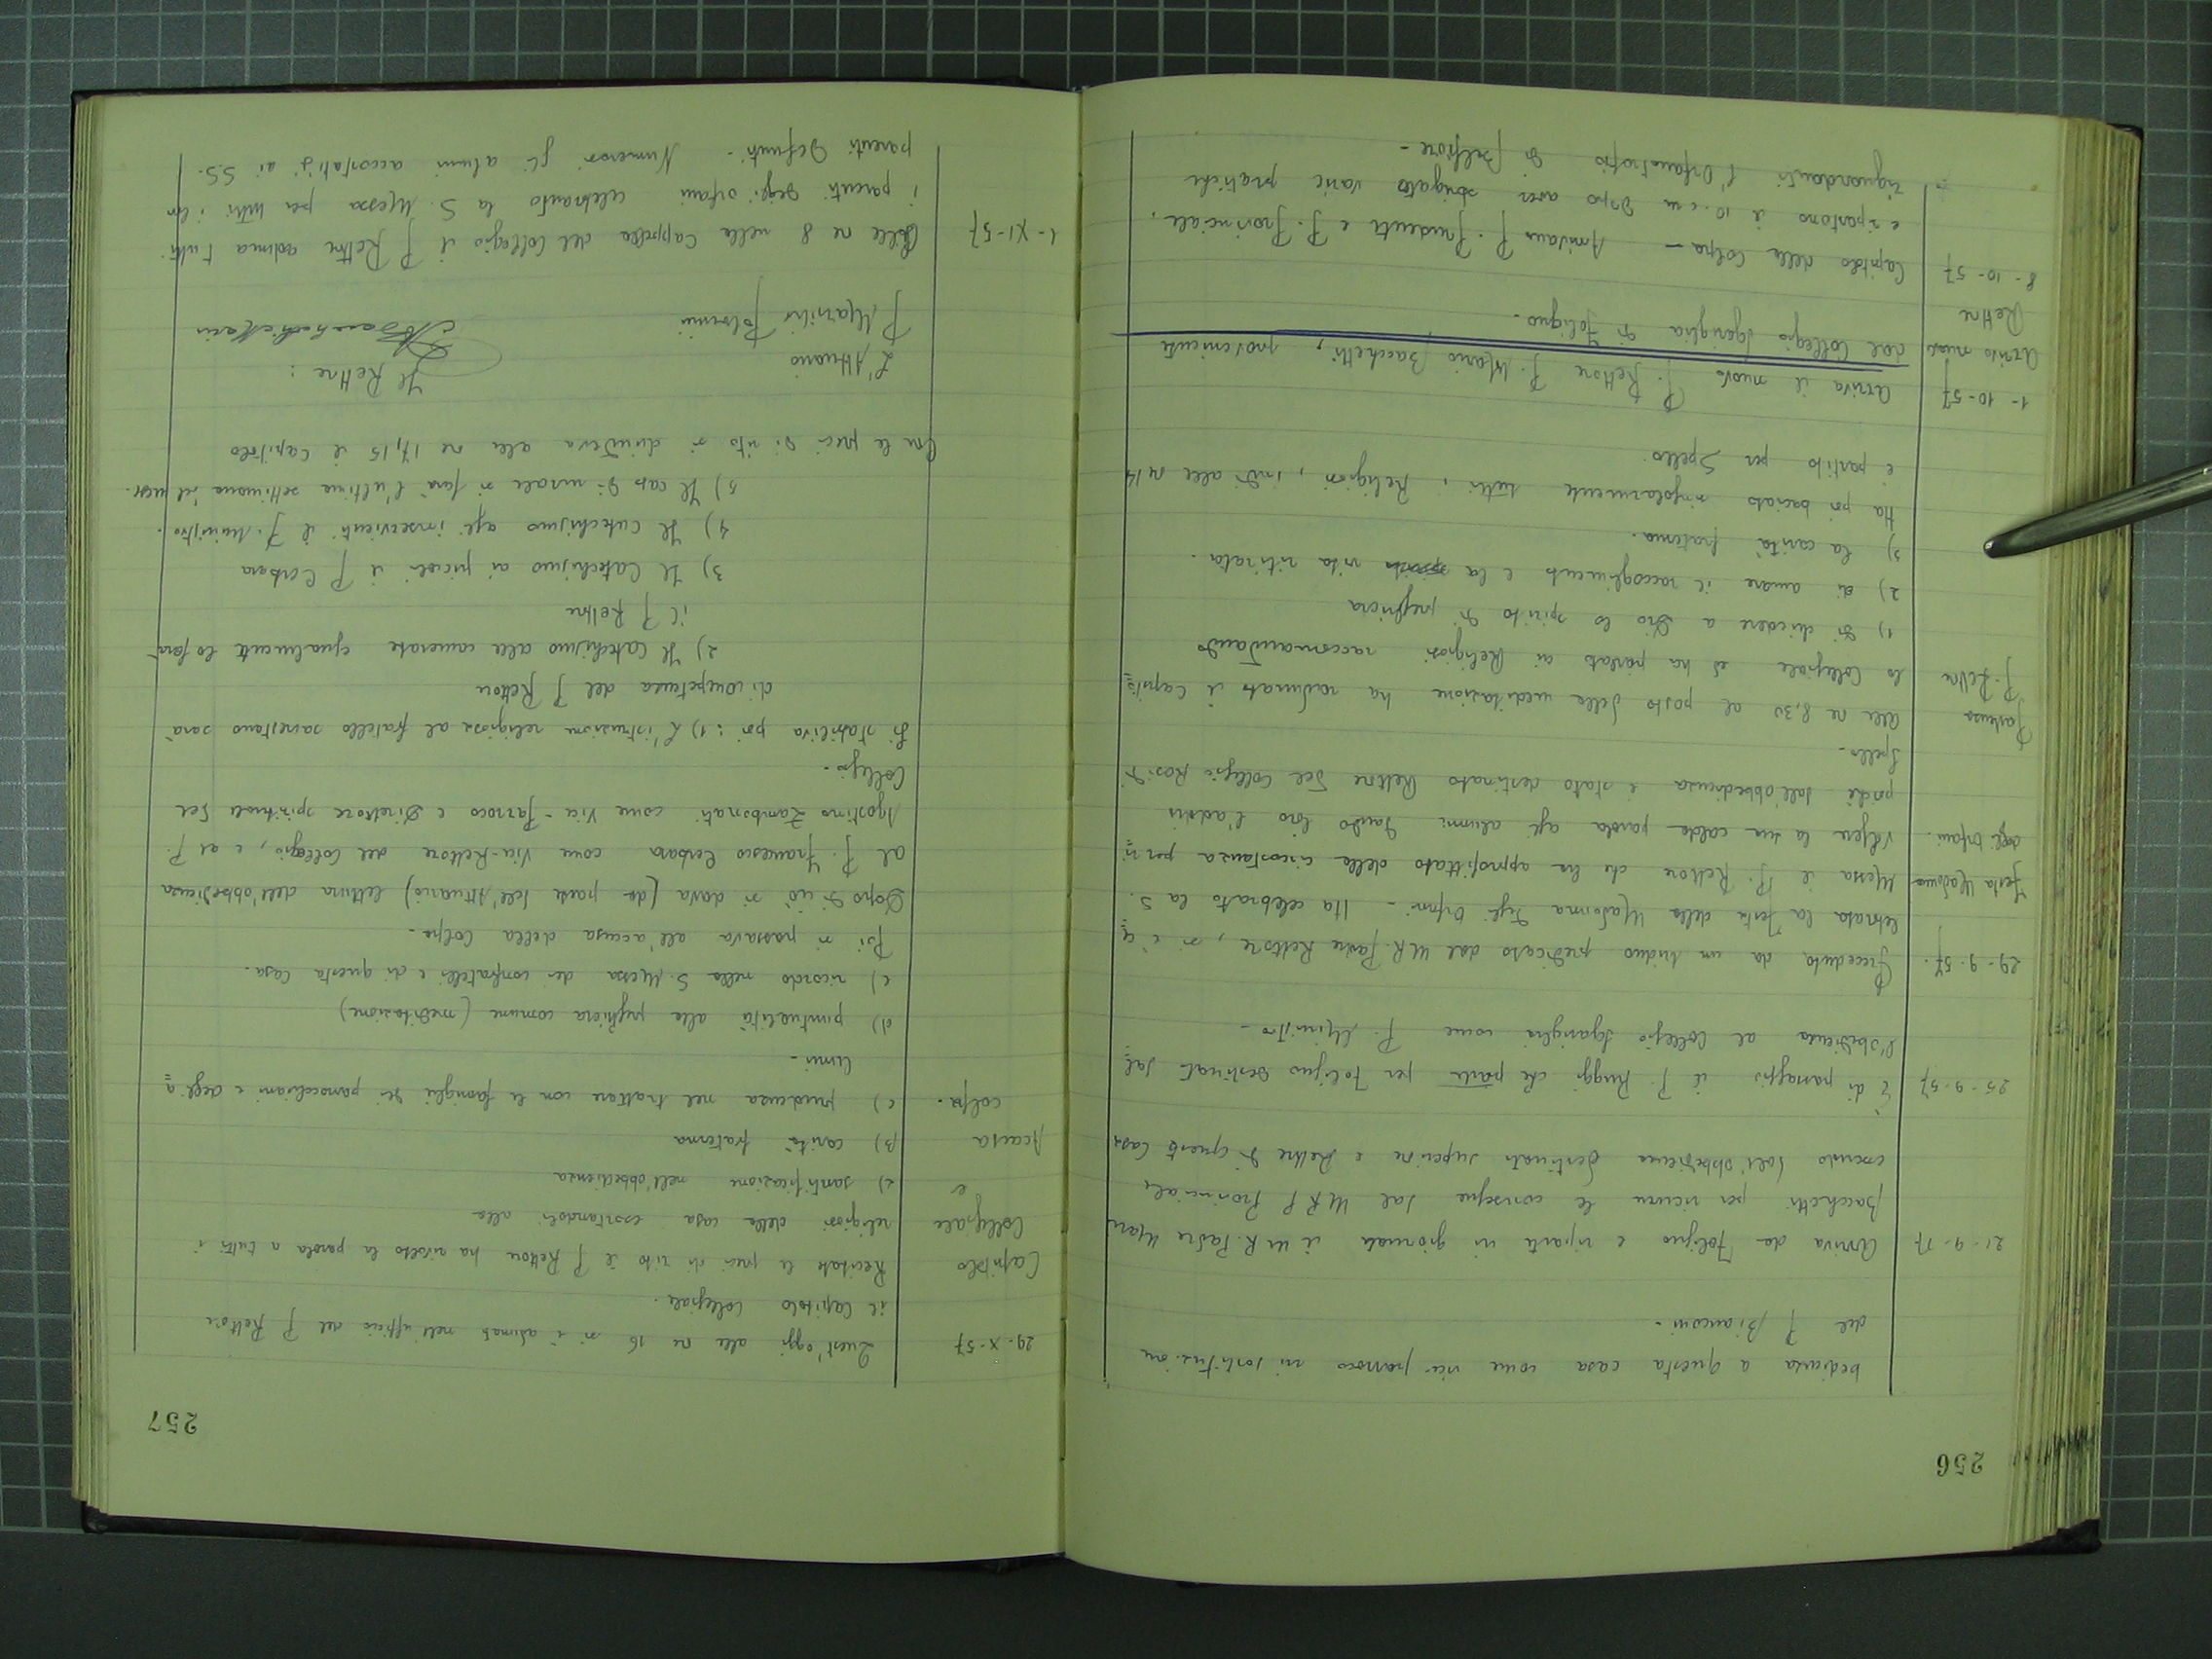 256
bedienza a questa casa come vice parroco in sostituzione
del P. Bianconi.
21-9-57 Arriva da Foligno e riparte in giornata il M.R. Padre Mario
Bacchetti per ricevere le consegne dal M.R.P. Provinciale
essendo dall'obbedienza destinato superiore e Rettore di questa Casa
25-9-57 È di passaggio il P. Ruggi che parte per Foligno destinato dal
l'obbedienza al Collegio Sgariglia come P. Ministro -
29-9-57. Preceduta da un triduo predicato dal M.R. Padre Rettore, si è ce
lebrata la festa della Madonna degli Orfani - Ha celebrato la S.
Festa Madonna Messa il P. Rettore che ha approfittato della circostanza per ri
degli Orfani. volgere la sua calda parola agli alunni dando loro l'addio
poiché dall'obbedienza è stato destinato Rettore del Collegio Rosi di
Spello.
Partenza Alle ore 8,30 al posto della meditazione ha radunato il Capito
P. Rettore lo Collegiale ed ha parlato ai Religiosi raccomandando
1) di chiedere a Dio lo spirito di preghiera
2) di amare il raccoglimento e la vita ritirata.
3) la carità fraterna.
Ha poi baciato singolarmente tutti i Religiosi, indi alle 14
è partito per Spello.
1-10-57 Arriva il nuovo P. Rettore P. Mario Bacchetti, proveniente
Arrivo nuovo dal Collegio Sgariglia di Foligno.
Rettore
8-10-57 Capitolo della Colpa - Arrivano P. Prudente e P. Provinciale,
e ripartono il 10 c.m. dopo aver sbrigato varie pratiche
riguardanti l'Orfanotrofio di Belfiore -
257
29-X-57 Quest'oggi alle ore 16 si è adunato nell'ufficio del P. Rettore
il Capitolo Collegiale.
Capitolo Recitate le preci di rito il P. Rettore ha rivolto la parola a tutti i
Collegiale religiosi della casa esortandoli alla
e 2) santificazione nell'obbedienza
Accusa B) carità fraterna
colpe. c) prudenza nel trattare con le famiglie dei parrocchiani e degli a
lunni -
d) puntualità alla preghiera comune (meditazione)
e) ricordo nella S. Messa dei confratelli di questa Casa.
Poi si passava all'accusa della Colpa.
Dopo di ciò si dava (da parte dell'Attuario) lettura dell'obbedienza
al P. Francesco Corbara come Vice-Rettore del Collegio, e al P.
Agostino Zambonati come Vice-Parroco e Direttore spirituale del
Collegio.
Si stabiliva poi: 1) L'istruzione religiosa al fratello sacrestano sarà
di competenza del P. Rettore
2) Il Catechismo alle camerate ugualmente lo farà
il P. Rettore
3) Il Catechismo ai piccoli il P. Corbara
4) Il Catechismo agli inservienti il P. Ministro.
5) Il caso di morale si farà l'ultima settimana del mese.
Con le preci di rito si chiudeva alle ore 17,15 il Capitolo
L'Attuario Il Rettore:
P.
1-XI-57 Alle ore 8 nella Cappella del Collegio il P. Rettore aduna tutti
i parenti degli orfani celebrando la S. Messa per tutti i loro
parenti defunti. Numerosi gli alunni accostatisi ai S.S.